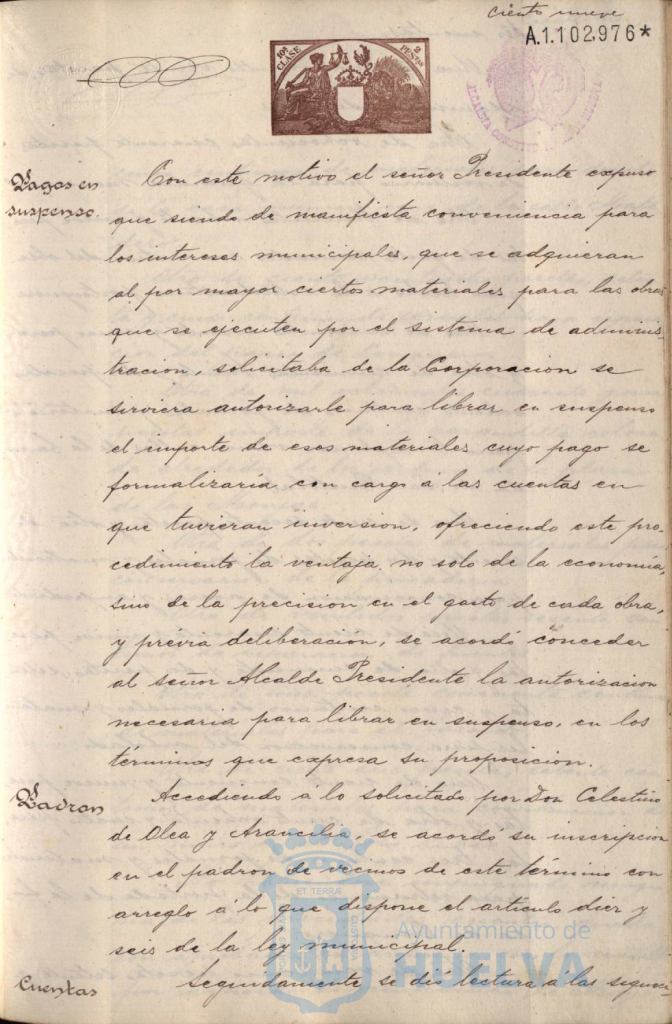 ciento nueve
A.1.102,976*
10ª CLASE
2 PESETAS
Pagos en suspenso.
Con este motivo el señor Presidente expuso
que siendo de manifiesta conveniencia para
los intereses municipales, que se adquieran
al por mayor ciertos materiales para las obras
que se ejecuten por el sistema de adminis-
tracion, solicitaba de la Corporacion se
sirviera autorizarle para librar en suspenso
el importe de esos materiales cuyo pago se
formalizaría con cargo á las cuentas en
que tuvieran inversion, ofreciendo este pro-
cedimiento la ventaja, no solo de la economía,
sino de la precision en el gasto de cada obra,
y prévia deliberación, se acordó conceder
al señor Alcalde Presidente la autorizacion
necesaria para librar en suspenso, en los
términos que expresa su proposicion.
Padron
Accediendo á lo solicitado por Don Celestino
de Olea y Arancilia, se acordó su inscripcion
en el padron de vecinos de este término con
arreglo á lo que dispone el artículo diez y
seis de la ley municipal.
Cuentas
Seguidamente se dió lectura á las siguien
Ayuntamiento de
HUELVA